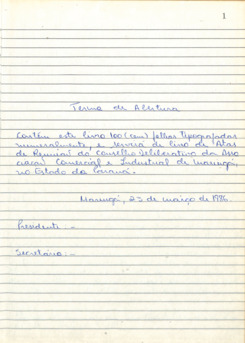 1
Termo de Abertura
Contém este livro 100 (cem) folhas tipografadas
numeralmente, e servirá de livro de Atas
de Reunião do Conselho Deliberativo da Asso
ciação Comercial e Industrial de Maringá,
no Estado do Paraná.
Maringá, 23 de março de 1976.
Presidente:-
Secretário:-